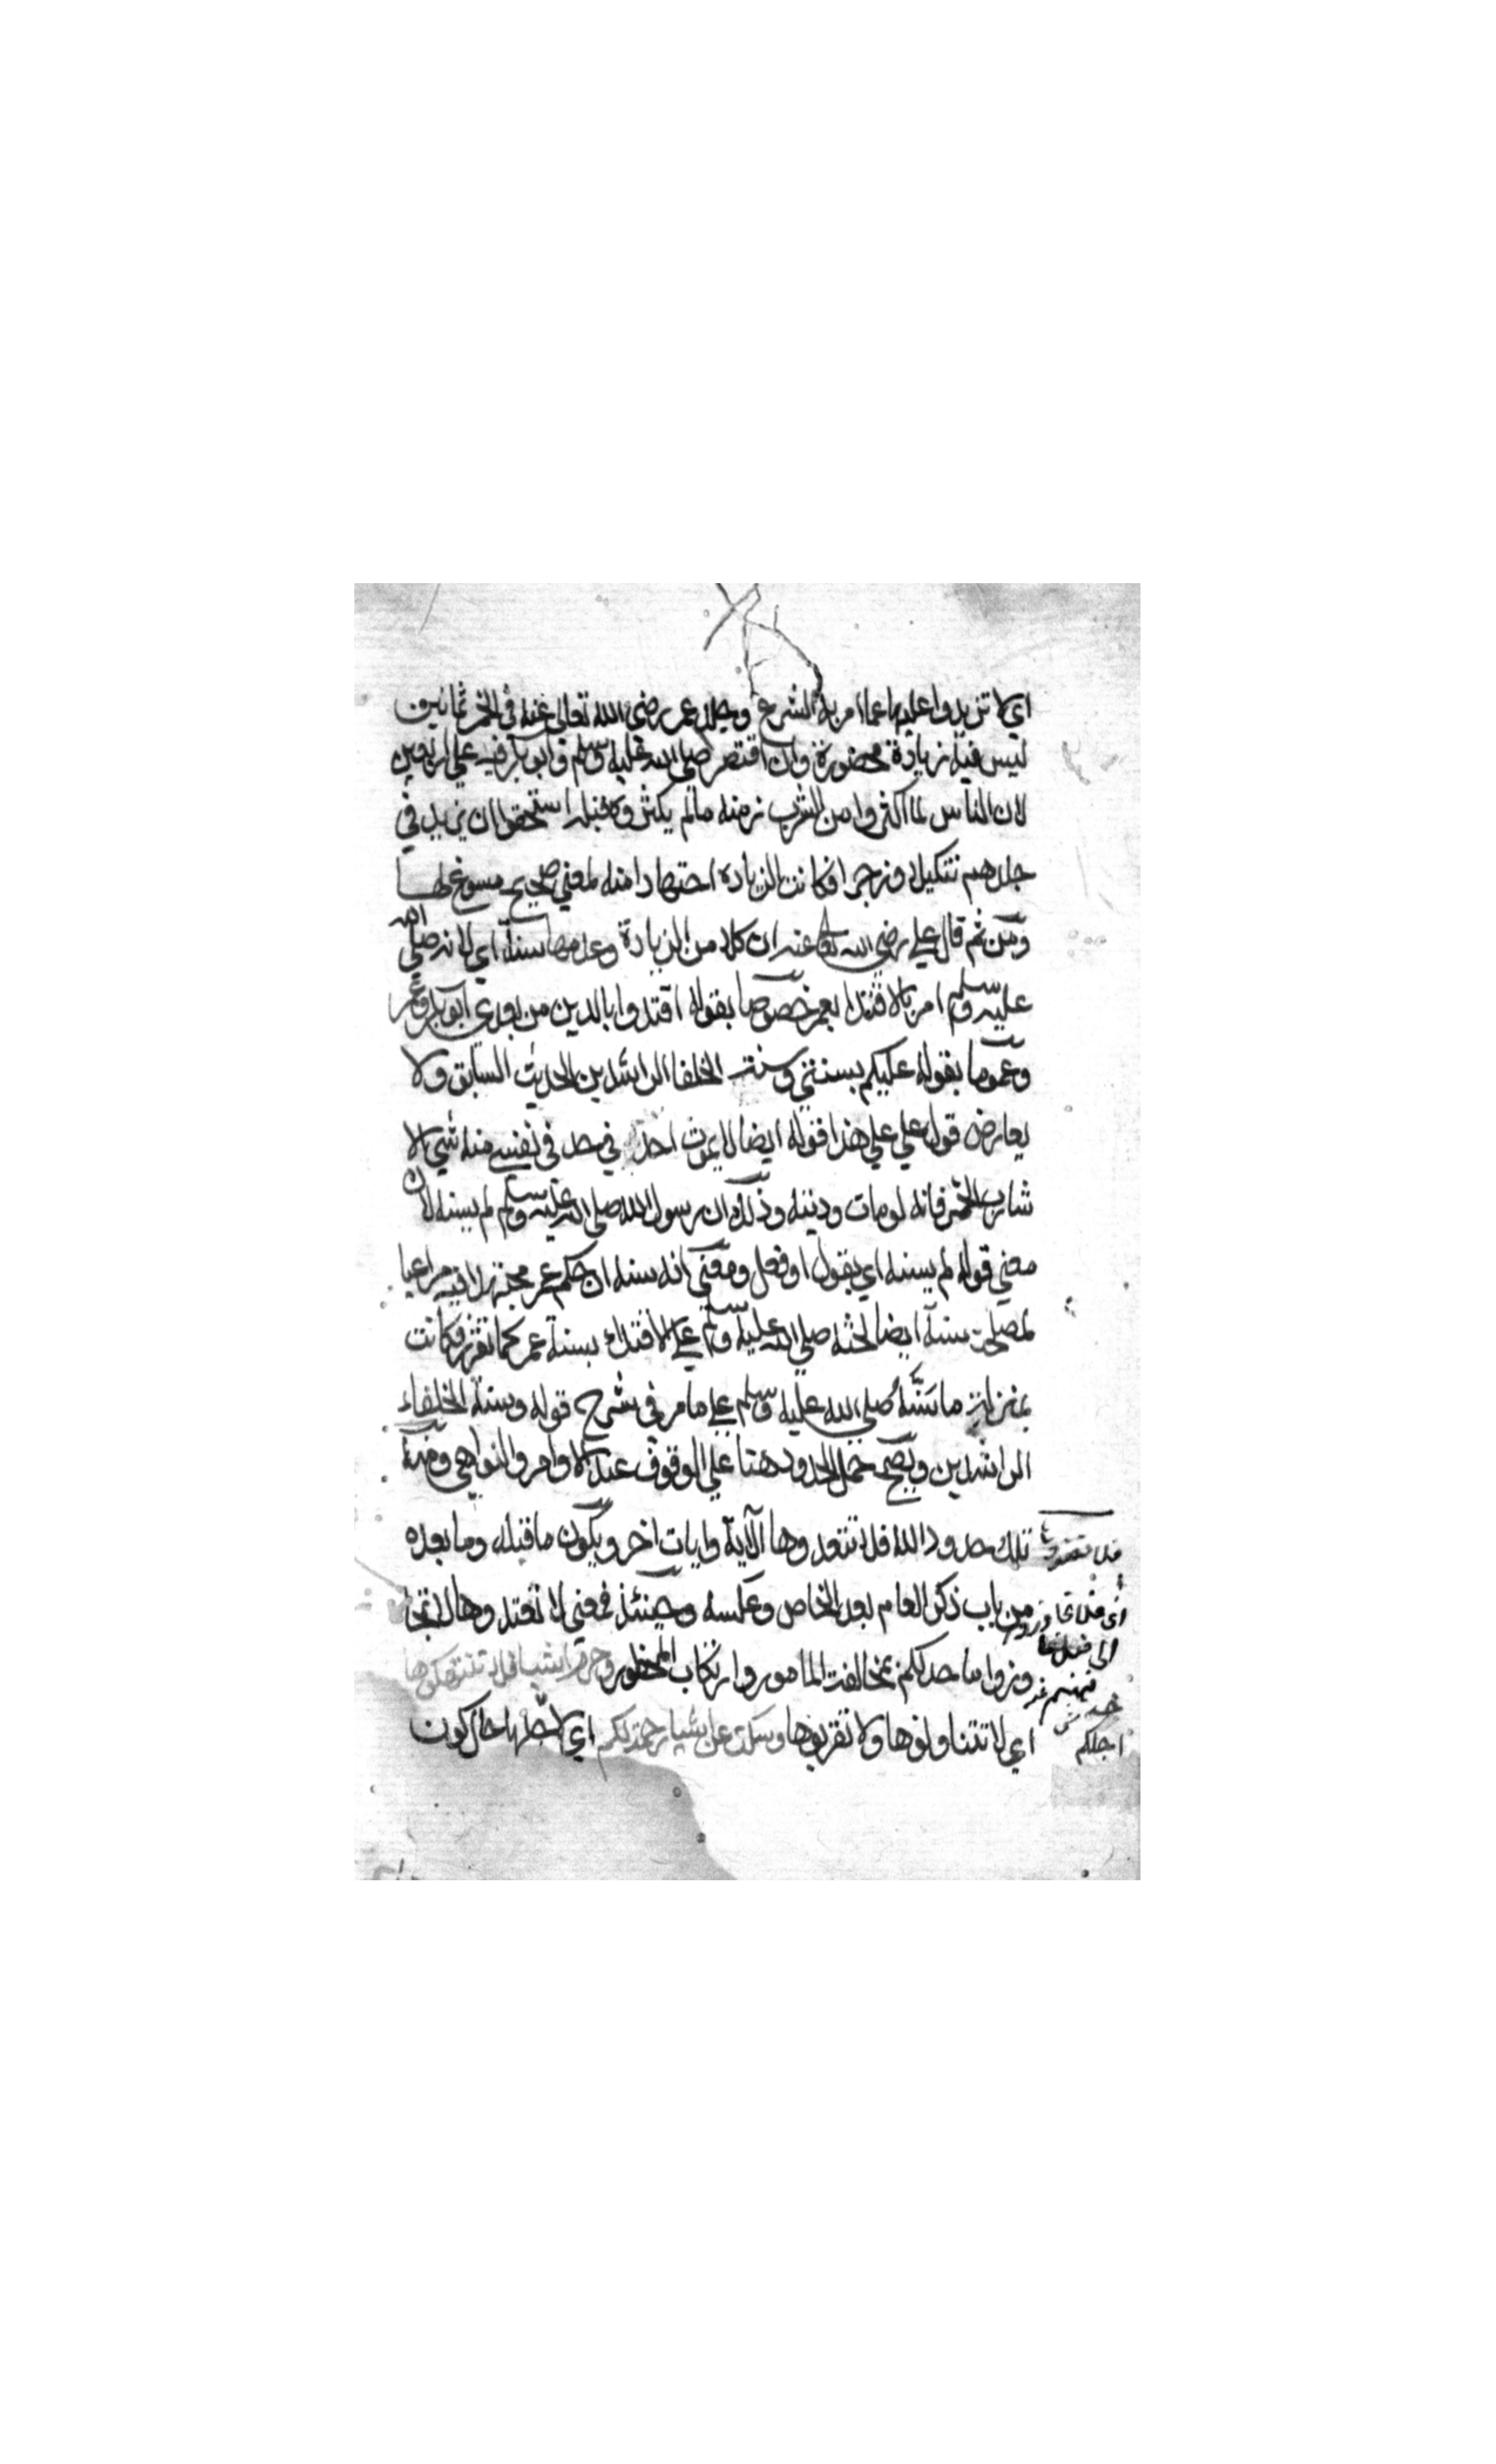 اي لا تزيدوا عليها عما امر به الشرع وجلد عمر رضي الله تعالى عنه في الخمر ثمانين
ليس فيه زيادة محضورة وان اقتصر صلى الله عليه وسلم وابو بكر فيه علي اربعين
لان الناس لما اكثروا من الشرب زمنه ما لم يكثروه قبله استحقوا ان يزيد في
جلدهم تنكيلا وزجرا فكانت الزيادة اجتهادا منه لمعني صحيح مسوغ لها
ومن ثم قال علي رضي الله تعا عنه ان كلا من الزيادة وعدمها سنة اي لانه صلي الله
عليه وسلم امر بالاقتدا بعمر خصوصا بقوله اقتدوا بالذين من بعدي ابو بكر وعمر
وعموما بقوله عليكم بسنتي وسنة الخلفا الراشدين الحديث السابق ولا
يعارض قول علي علي هذا قوله ايضا لا يموت احد في حد في نفسي منه شي الا
شارب الخمر فانه لو مات وديته وذلك ان رسول الله صلى الله عليه وسلم لم يسنه لان
معني قوله لم يسنه اي بقول او فعل ومعني انه سنه ان حكم عمر مجتهدا فيه مراعيا
لمصلحة سنة ايضا لحثه صلى الله عليه وسلم علي الاقتداء بسنة عمر كما تقرر فكانت
بمنزلة ما سَنَّهُ صلى الله عليه وسلم علي ما مر في شرح قوله وسنة الخلفاء
الراشدين ويصح حمل الحدود هنا علي الوقوف عند الاوامر والنواهي ومنه
تلك حدود الله فلا تعتدوها الآية وايات اخر ويكون ما قبله وما بعده
من باب ذكر العام بعد الخاص وعكسه وحينئذ فمعني لا تعتدوها لا تتجا
وزوا ما حد لكم بمخالفة المامور وارتكاب المحظور وحرم اشيا فلا تنتهكوها
اي لا تتناولوها ولا تقربوها وسكت عن اشيا رحمة لكم اي لاجلها حال كون
فلا تعتدوها
أي فلا تجاوزوا